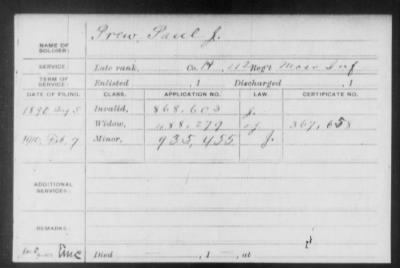 Prew, Paul J.
NAME OF SOLDIER:
SERVICE: Late rank, Co. H, 42 Reg't Mass Inf
TERM OF SERVICE: Enlisted , 1 Discharged , 1
DATE OF FILING. CLASS. APPLICATION NO. LAW. CERTIFICATE NO.
1890 Aug 5 Invalid, 868,603 J.
Widow, 488,279 of 367,658
1910, Feb, 7 Minor, 935,455 J.
ADDITIONAL SERVICES:
REMARKS:
Died , 1 , at